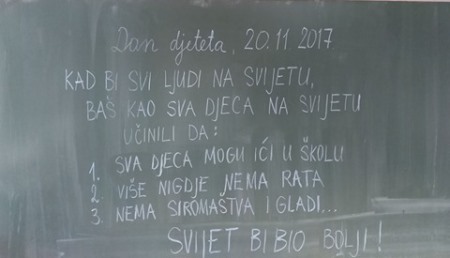 Dan djeteta, 20.11 2017.
KAD BI SVI LJUDI NA SVIJETU,
BAŠ KAO SVA DJECA NA SVIJETU
UČINILI DA:
1. SVA DJECA MOGU IĆI U ŠKOLU
2. VIŠE NIGDJE NEMA RATA
3. NEMA SIROMAŠTVA I GLADI...
SVIJET BI BIO BOLJI!